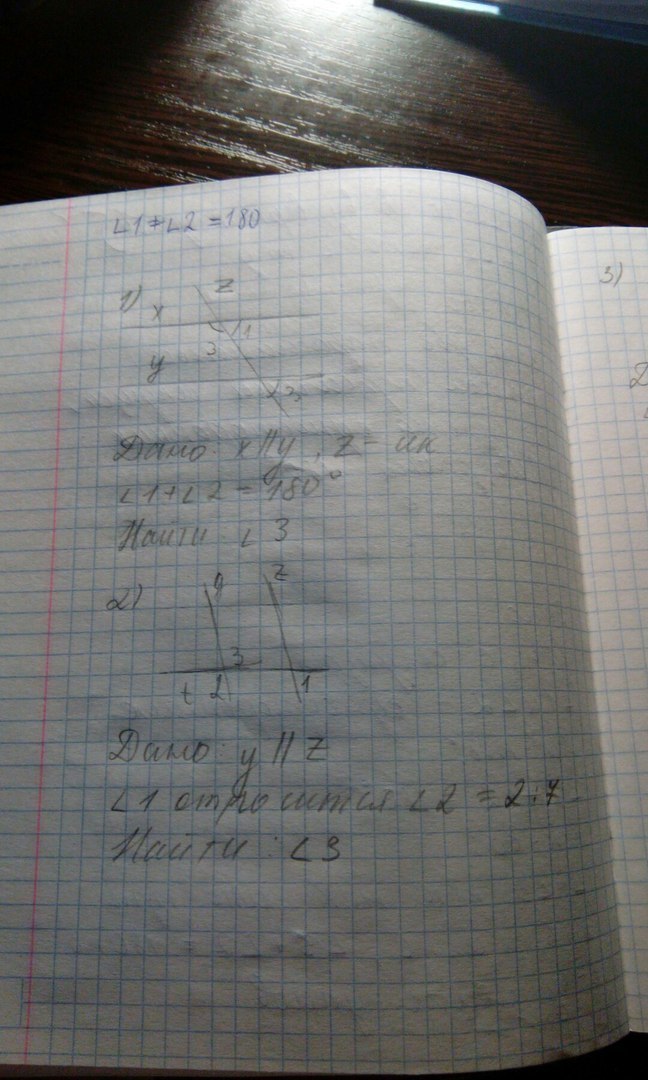 ∠1+∠2=180
1)
z
x
1
3
y
Дано: x||y, z-
∠1+∠2=180°
Найти ∠3
2)
z
3
t 2 1
Дано: y||z
∠1 отно ∠2 = 2:7
Найти: ∠3
3)